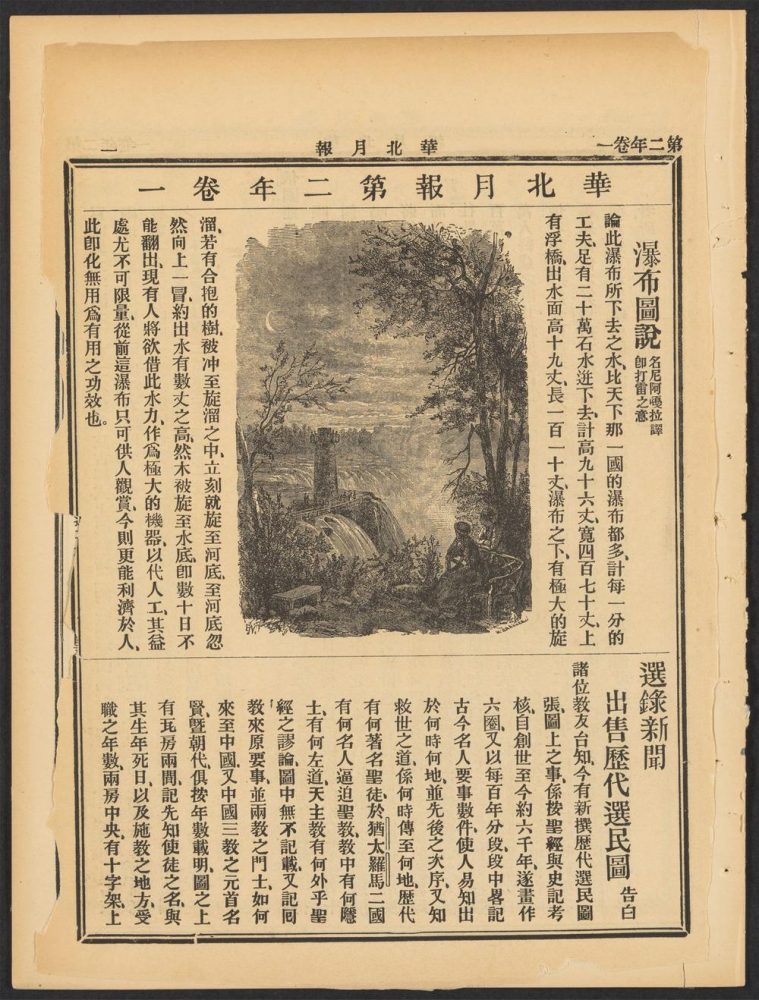 第二年卷一
華北月報
一
華北月報第二年卷一
瀑布圖說
名尼阿嘎拉譯
卽打雷之意
論此瀑布所下去之水、比天下那一國的瀑布都多、計每一分的
工夫、足有二十萬石水迸下去、計高九十六丈、寬四百七十丈、上
有浮橋、出水面高十九丈、長一百一十丈、瀑布之下、有極大的旋
溜、若有合抱的樹、被冲至旋溜之中、立刻就旋至河底、至河底忽
然向上一冒、約出水有數丈之高、然木被旋至水底、卽數十日不
能翻出、現有人將欲借此水力、作爲極大的機器、以代人工、其益
處尤不可限量、從前這瀑布只可供人觀賞、今則更能利濟於人、
此卽化無用爲有用之功效也。
選錄新聞
出售歷代選民圖 告白
諸位教友台知、今有新撰歷代選民圖
張、圖上之事、係按聖經與史記考
核、自創世至今約六千年、遂畫作
六圈、又以每百年分段、段中畧記
古今名人要事數件、使人易知出
於何時何地、並先後之次序、又知
救世之道、係何時傳至何地、歷代
有何著名聖徒、於猶太羅馬二國
有何名人逼迫聖教、教中有何隱
士、有何左道、天主教有何外乎聖
經之謬論、圖中無不記載、又記囘
教來原要事、並兩教之門士、如何
來至中國、又中國三教之元首名
賢、曁朝代俱按年數載明、圖之上
有瓦房兩間、記先知使徒之名、與
其生年死日、以及施教之地方、受
職之年數、兩房中央、有十字架、上